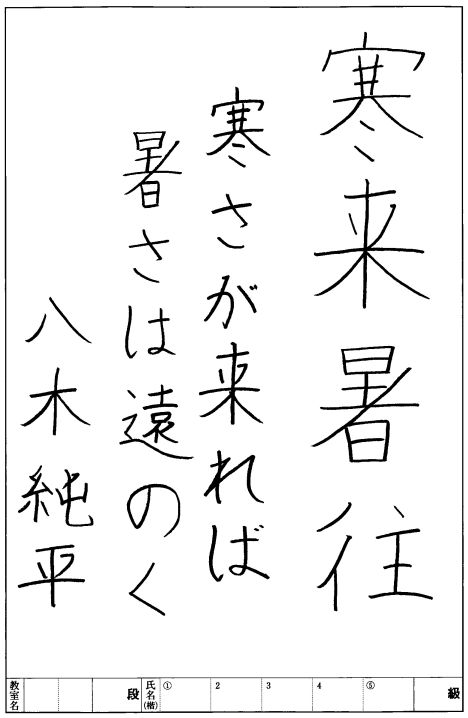 寒来暑往
寒さが来れば
暑さは遠のく
八木純平
教室名
段
氏名(楷)
① 2 3 4 ⑤
級